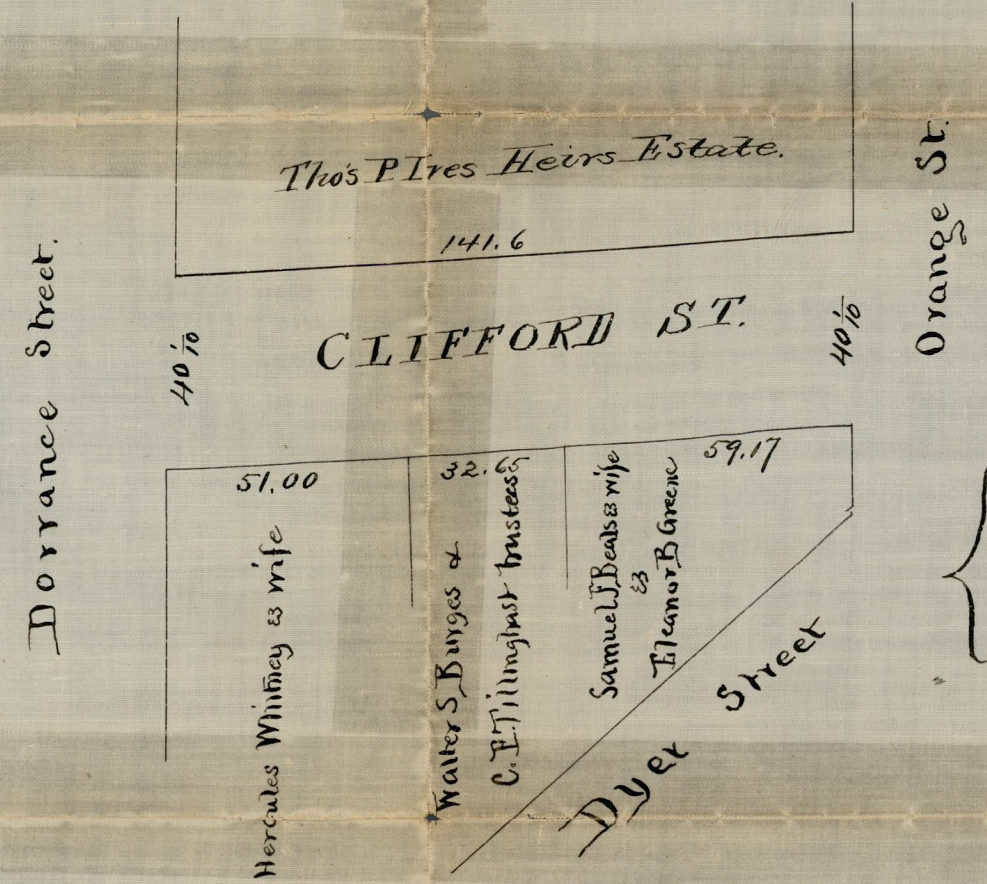 Tho's P Ives Heirs Estate.
141.6
Dorrance Street.
Orange St.
40 1/10
CLIFFORD ST.
40 1/10
51.00
32.65
59.17
Hercules Whitney & wife
Walter S Burges &
C. E Tillinghast trustees
Samuel F Beals & wife
&
Eleanor B Greene
Dyer Street